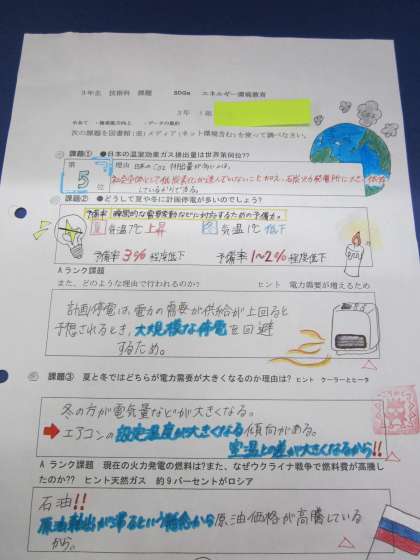 3年生 技術科 課題 SDGs エネルギー環境教育
3年 1組
次の課題を図書館(室)メディア(ネット環境含む)を使って調べなさい。
課題① ●日本の温室効果ガス排出量は世界第何位??
第5位
理由 日本のCO2排出量が多いのは、
しているからである。
課題② ●どうして夏や冬に計画停電が多いのでしょう?
予備率 瞬間的な需要変動などに対応するための予備力。
夏 気温1℃上昇 冬 気温1℃低下
予備率3%程度低下 予備率1~2%程度低下
Aランク課題
また、どのような理由で行われるのか? ヒント 電力需要が増えるため
計画停電は、電力の需要が供給が上回ると
予想されるとき、大規模な停電を回避
するため。
課題③ 夏と冬ではどちらが電力需要が大きくなるのか理由は? ヒント クーラーとヒータ
冬の方が電気量などが大きくなる。
➡エアコンの設定温度が大きくなる傾向がある。
室温との差が大きくなるから!!
Aランク課題 現在の火力発電の燃料は?また、なぜウクライナ戦争で燃料費が高騰し
たのか?? ヒント天然ガス 約9パーセントがロシア
石油!!
原油輸出が滞るという懸念から原油価格が高騰している
から。